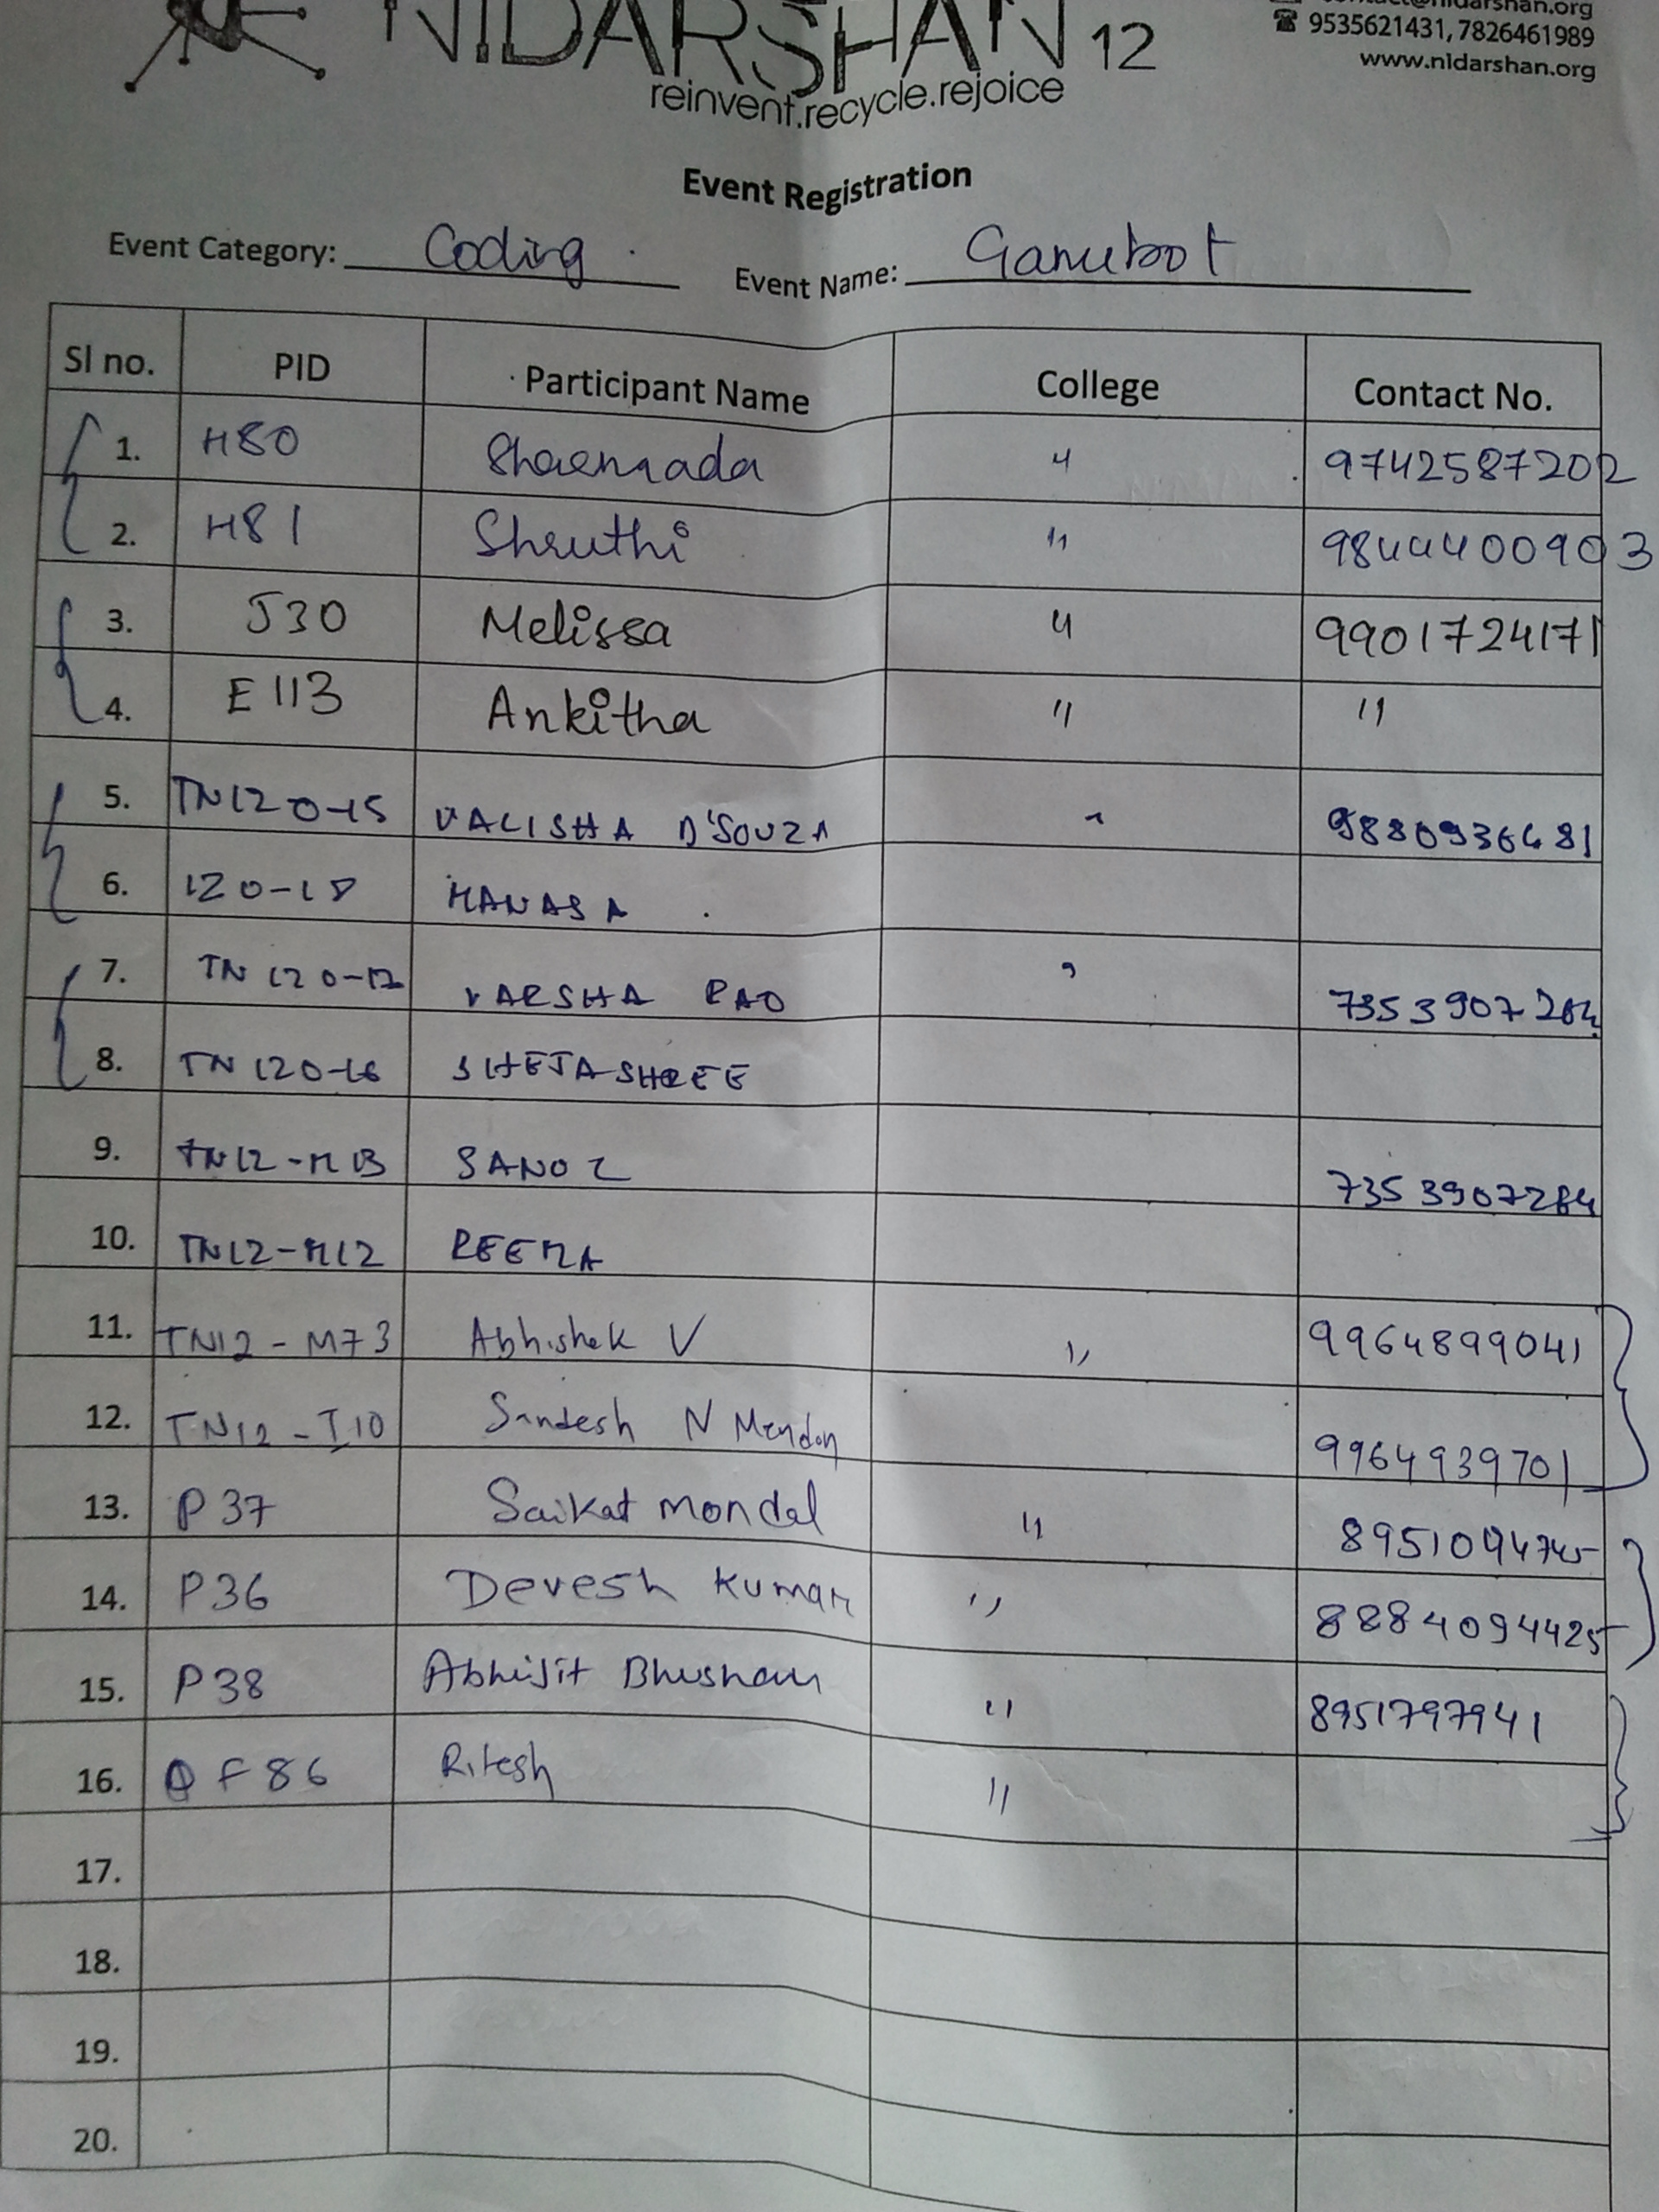 NIDARSHAN 12
9535621431, 7826461989
www.nidarshan.org
reinvent.recycle.rejoice
Event Registration
Event Category: Coding Event Name: Gamebot
Sl no. PID Participant Name College Contact No.
1. H80 " 9742587202
2. H81 Shruthi " 9844400903
3. J30 Melissa " 9901724171
4. E113 Ankitha " "
5. TN120-15 VALISHA D'SOUZA " 9880936481
6. 120-18 MANASA
7. TN 120-12 VARSHA RAO " 7353907284
8. TN 120-16
9. TN12-M13 7353907284
10. TN12-M12 REEMA
11. TN12-M73 Abhishek V " 9964899041
12. TN12-I10 Sandesh N Mendon 9964939701
13. P37 Saikat mondal " 8951094745
14. P36 Devesh Kumar " 8884094425
15. P38 Abhijit Bhushan " 8951797941
16. F86 Ritesh "
17.
18.
19.
20.